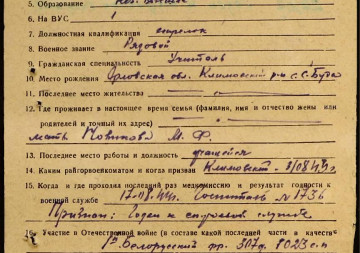 5. Образование
6. На ВУС 1
7. Должностная квалификация стрелок
8. Военное звание Рядовой
9. Гражданская специальность Учитель
10. Место рождения Орловская обл. Климовский р-н с. С. Буда
11. Последнее место жительства —
12. Где проживает в настоящее время семья (фамилия, имя и отчество жены или
родителей и точный их адрес)
мать Новикова М. Ф.
13. Последнее место работы и должность учащейся
14. Каким райгорвоенкоматом и когда призван Климовский - 8/08.44г.
15. Когда и где проходил последний раз медкомиссию и результат годности к
военной службе 17-08.44г. Госпиталь № 1736
Признан: Годен к строевой службе
16. Участие в Отечественной войне (в составе какой последней части и в качестве
1й Белорусский фр. 307д. 1023 с.п